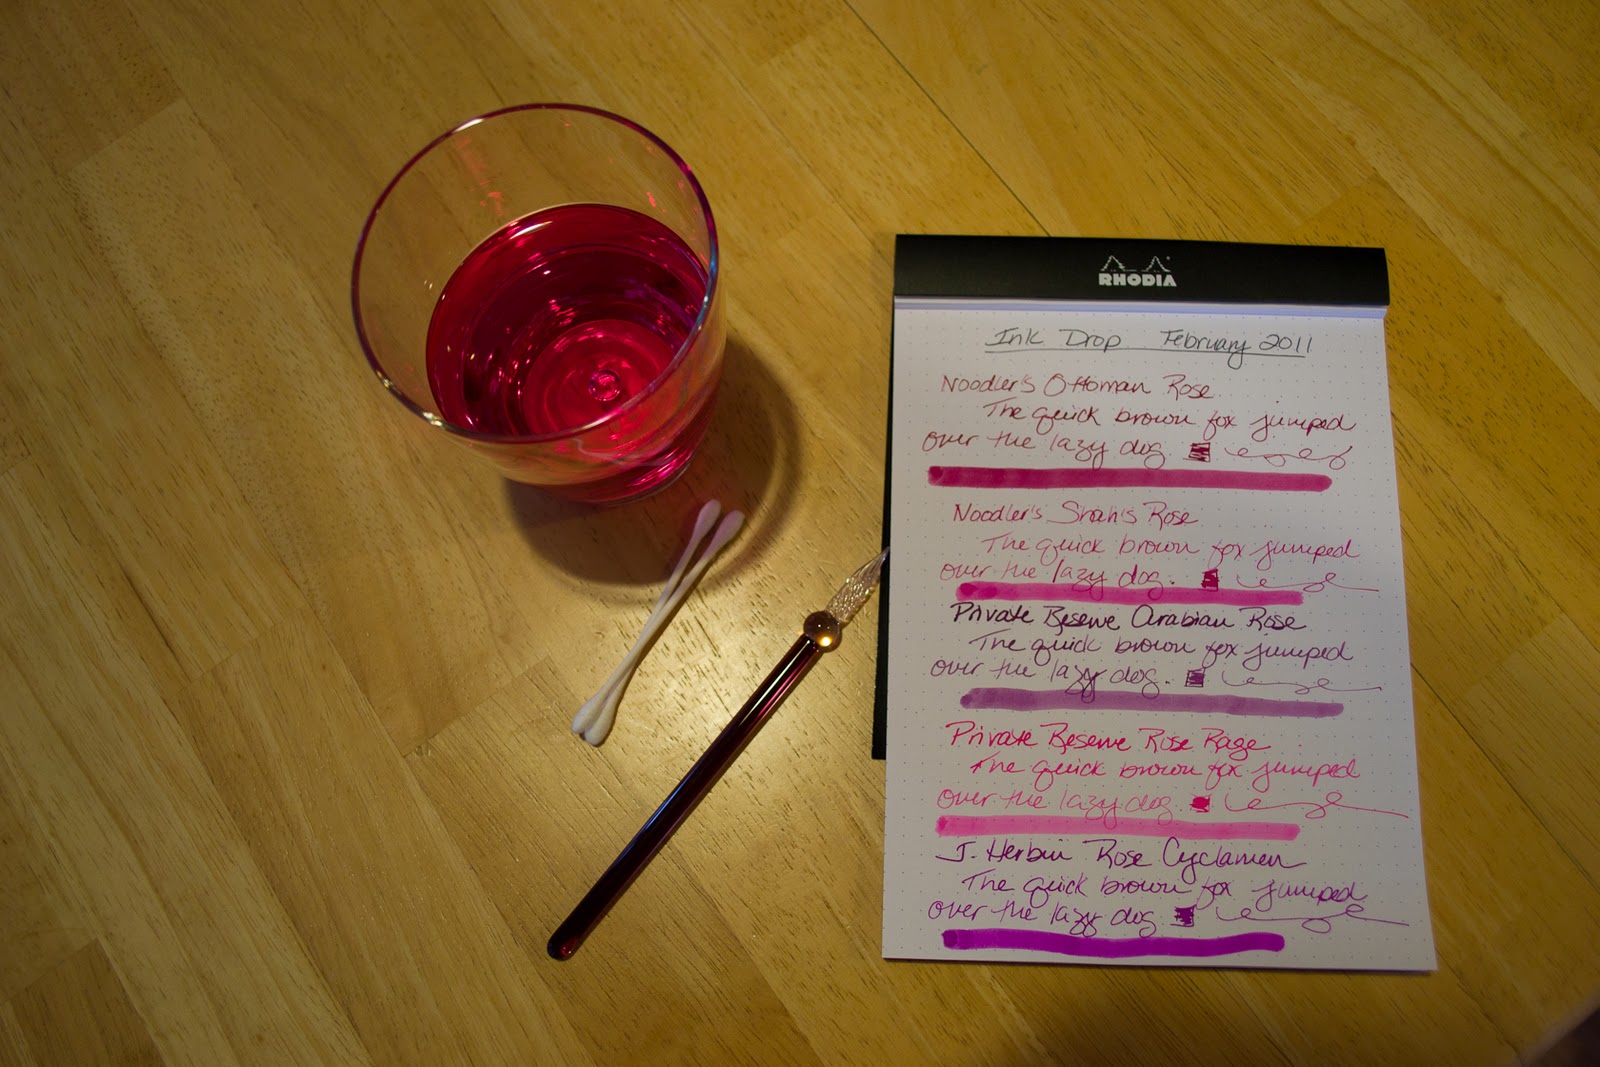 RHODIA
Ink Drop February 2011
Noodler's Ottoman Rose
The quick brown fox jumped
over the lazy dog.
Noodler's Shah's Rose
The quick brown fox jumped
over the lazy dog.
Private Reserve Arabian Rose
The quick brown fox jumped
over the lazy dog.
Private Reserve Rose Rage
The quick brown fox jumped
over the lazy dog.
J. Herbin Rose Cyclamen
The quick brown fox jumped
over the lazy dog.